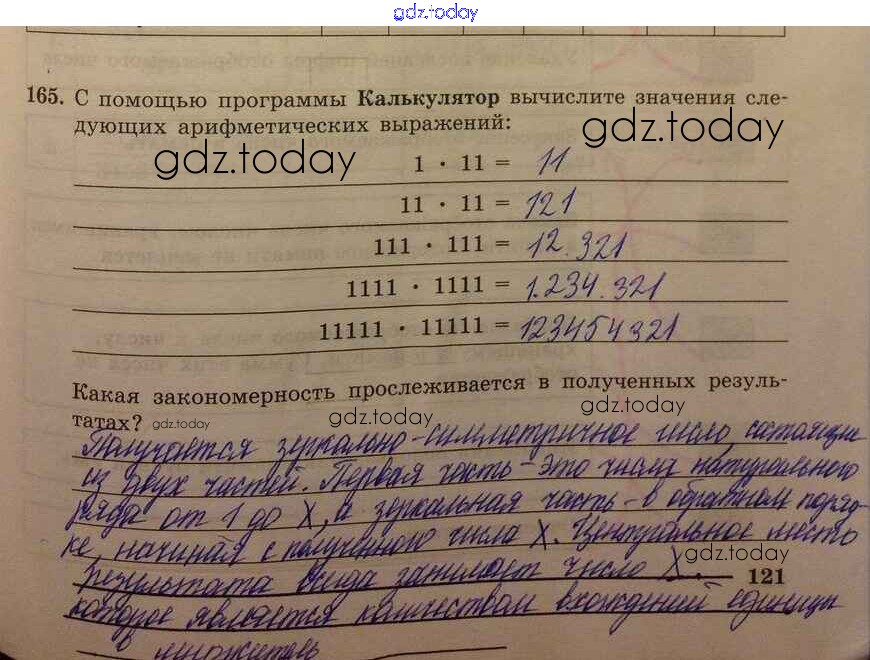 gdz.today
165. С помощью программы Калькулятор вычислите значения сле-
дующих арифметических выражений:
gdz.today
gdz.today
1 · 11 = 11
11 · 11 = 121
111 · 111 = 12.321
1111 · 1111 = 1.234.321
11111 · 11111 = 123454321
Какая закономерность прослеживается в полученных резуль-
татах?
gdz.today
gdz.today
gdz.today
Получается зеркально-симметричное число, состоящие
из двух частей. Первая часть - это числа натурального
ряда от 1 до X, а зеркальная часть - в обратном поряд-
ке, начиная с полученного числа X. Центральное место
gdz.today
результата всегда занимает число X,
121
которое является количеством вхождений единицы
в множитель